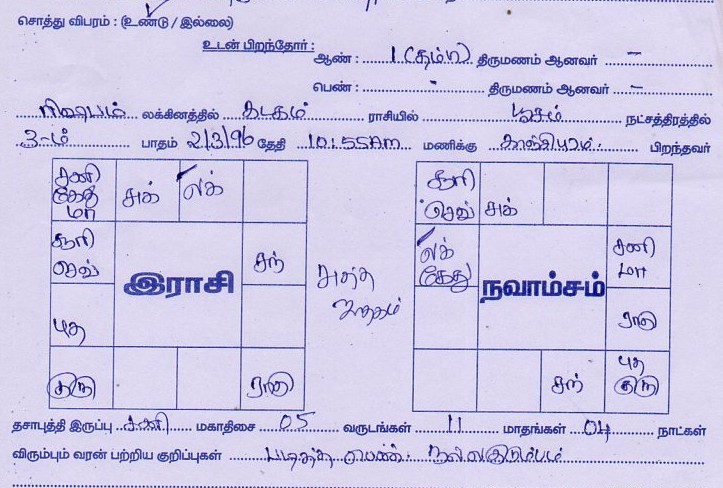 சொத்து விபரம் : (உண்டு / இல்லை)
உடன் பிறந்தோர் :
ஆண் : 1 (தம்பி) திருமணம் ஆனவர் –
பெண் : - திருமணம் ஆனவர் –
ரிஷபம் லக்கினத்தில் கடகம் ராசியில் பூசம் நட்சத்திரத்தில்
3-ம் பாதம் 2/3/96 தேதி 10:55Am மணிக்கு காஞ்சிபுரம். பிறந்தவர்
சனி கேது மா
சுக்
லக்
சூரி செவ்
சந்
புத
குரு
ராகு
இராசி
சுத்த ஜாதகம்
சூரி செவ்
சுக்
லக் கேது
சனி மா
ராகு
சந்
புத குரு
நவாம்சம்
தசாபுத்தி இருப்பு சனி மகாதிசை 05 வருடங்கள் 11 மாதங்கள் 04 நாட்கள்
விரும்பும் வரன் பற்றிய குறிப்புகள் படித்த பெண். நல்லகுடும்பம்